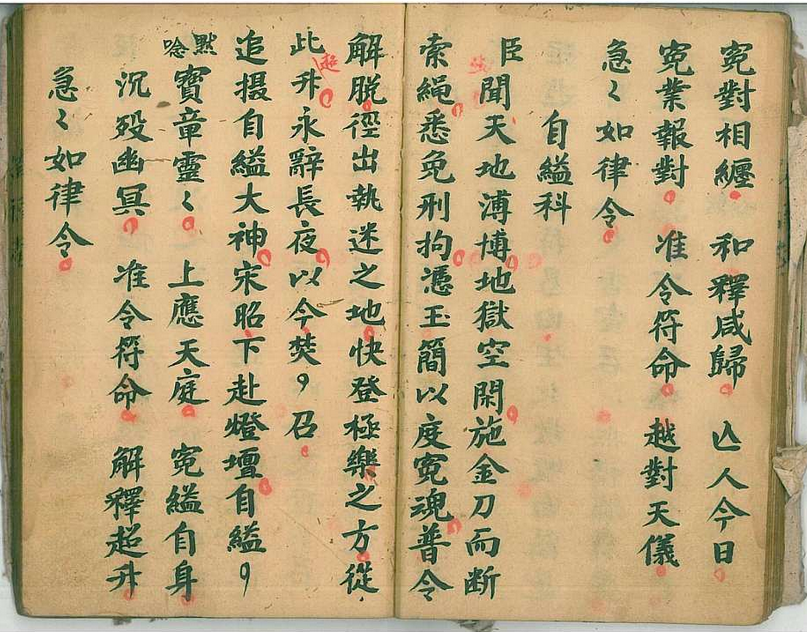 寃對相纏 和釋咸歸 亾人今日
寃業報對 准令符命 越對天儀
急〻如律令
自縊科
臣聞天地溥博地獄空閑施金刀而断
索繩悉免刑拘憑玉簡以度寃魂普令
解脱徑出執迷之地快登極樂之方從
此升永辭長夜以今焚召
超
追摄自縊大神宋昭下赴燈壇自縊
默唸
寶章靈〻 上應天庭 寃縊自身
沉殁幽冥 准令符命 解釋超升
急〻如律令